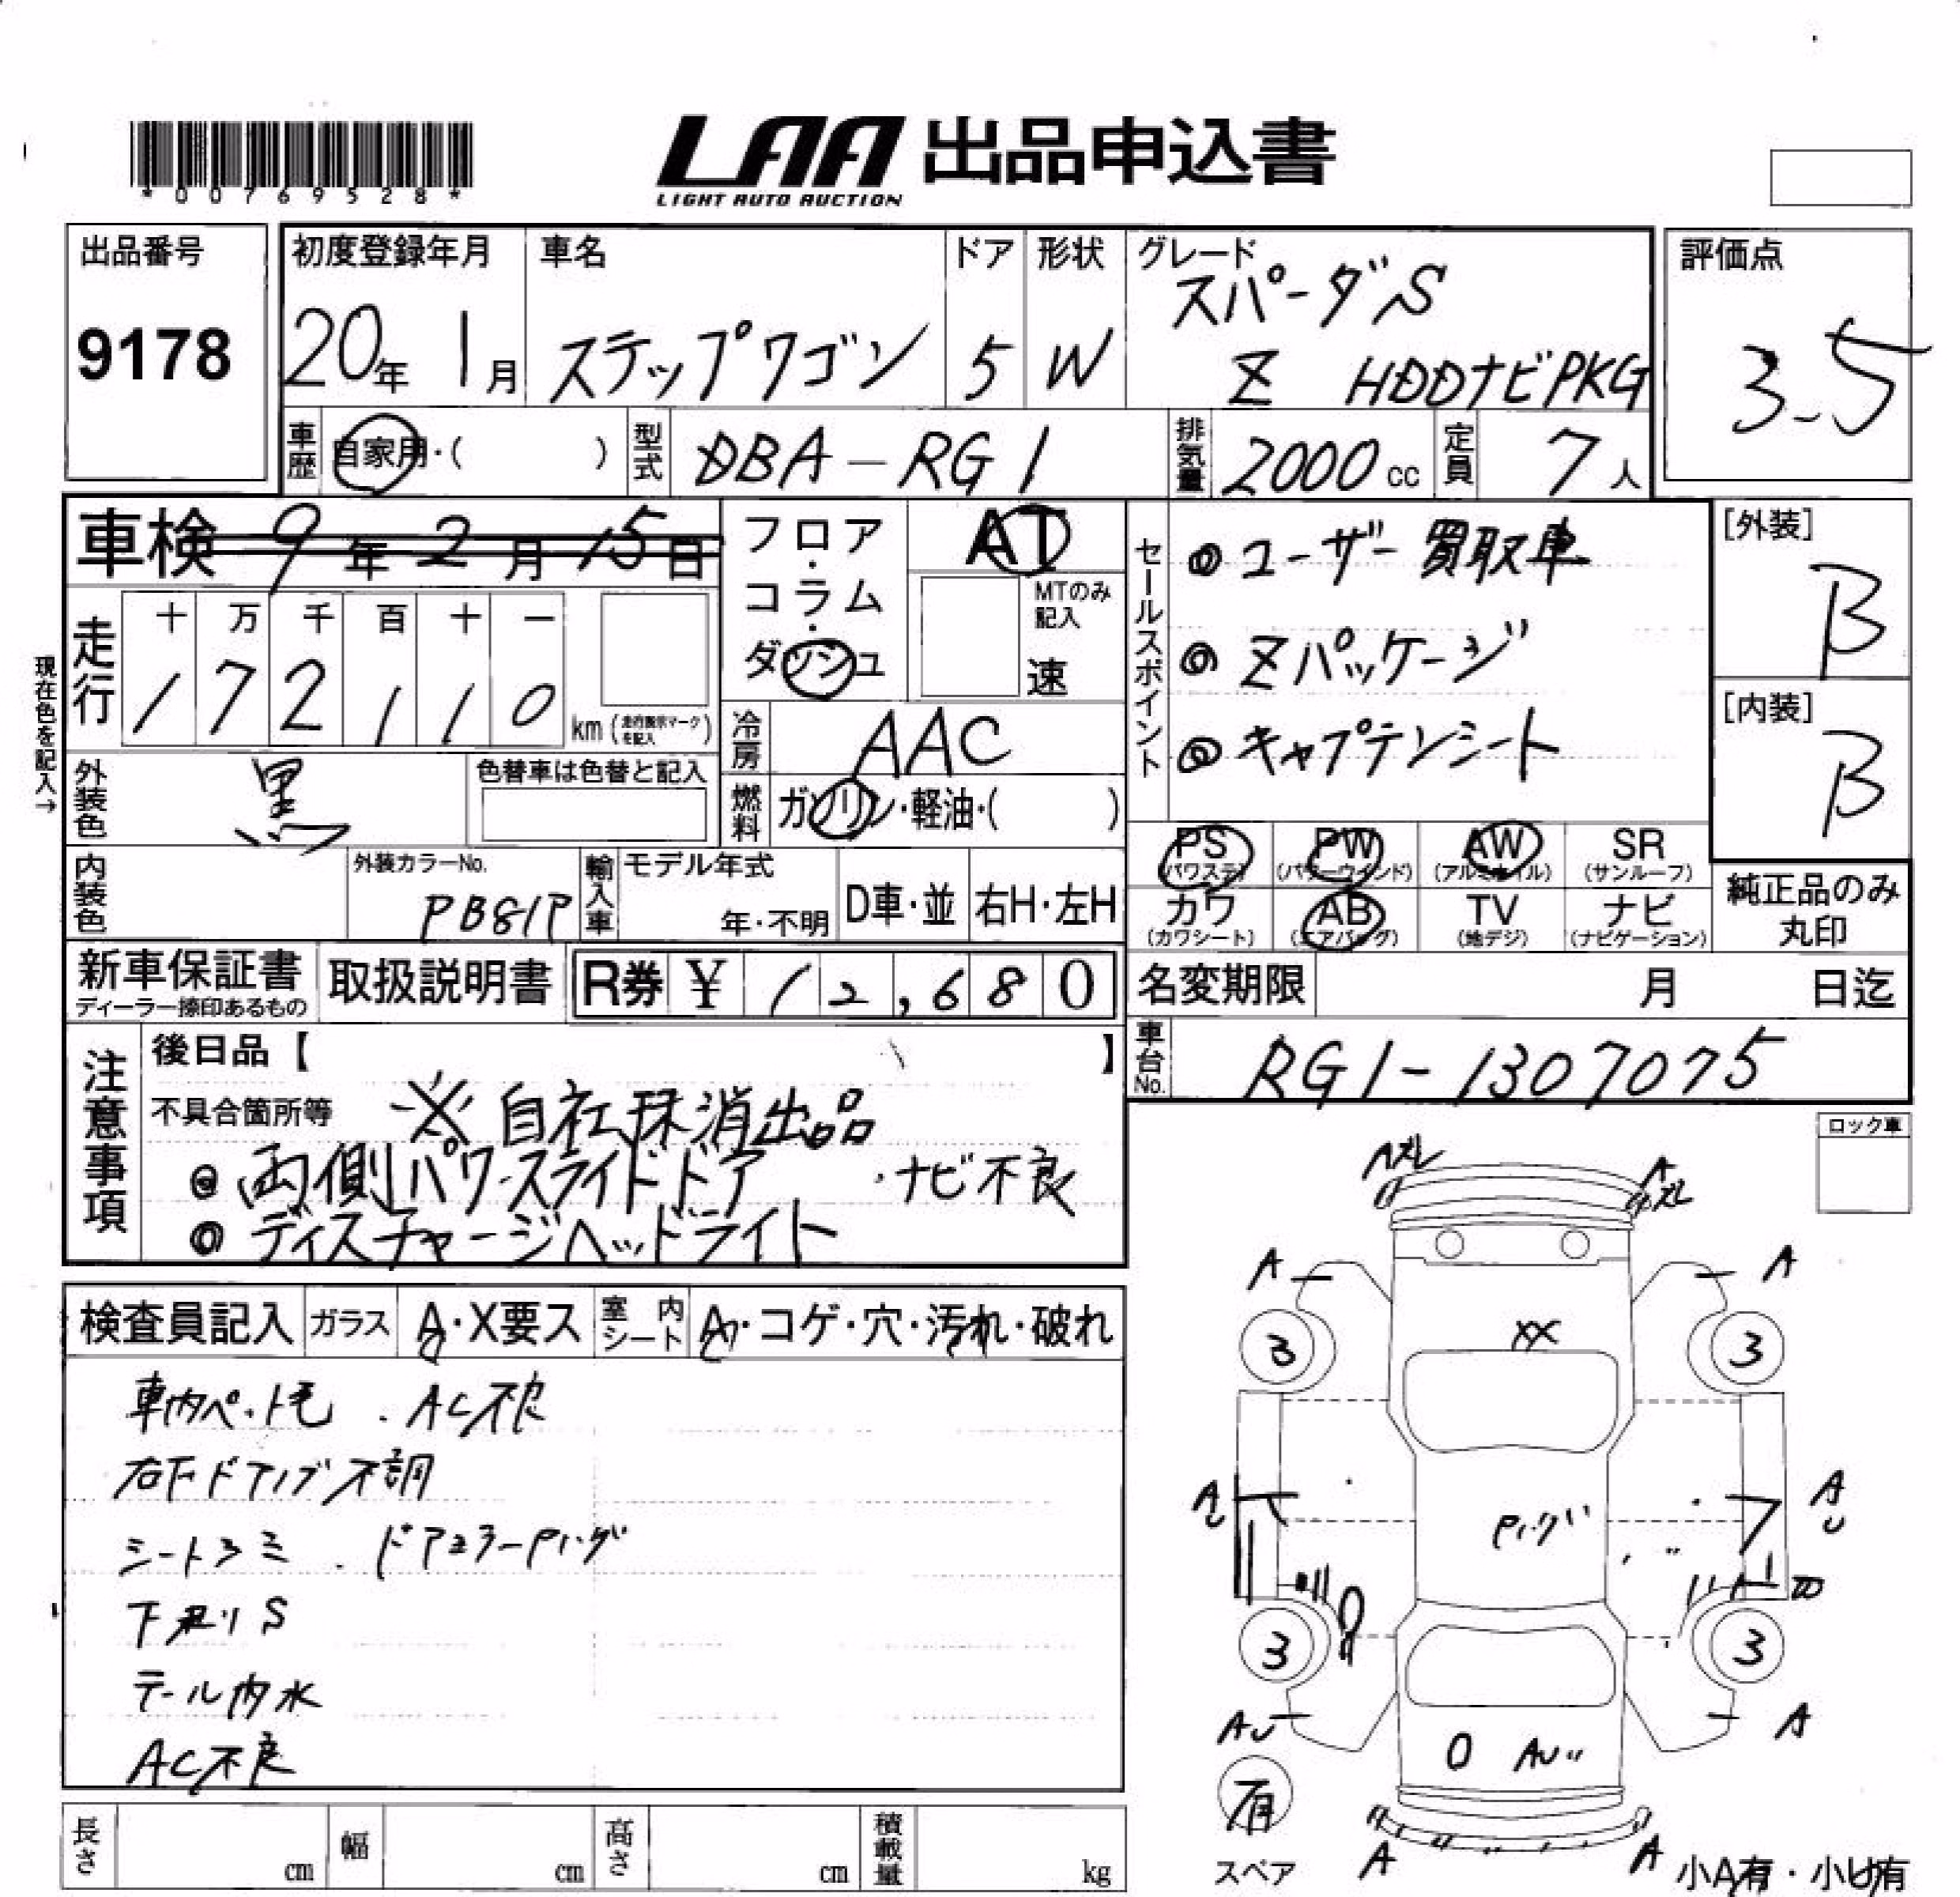 *00769528*
LAA 出品申込書
LIGHT AUTO AUCTION
出品番号
9178
初度登録年月
20年 1月
車名
ステップワゴン
ドア
5
形状
W
グレード
スパーダS
Z HDDナビPKG
評価点
3.5
車歴
自家用・( )
型式
DBA-RG1
排気量
2000cc
定員
7人
車検 9年2月15日
フロア・コラム・ダッシュ
AT
MTのみ記入
速
セールスポイント
◎ユーザー買取車
◎Zパッケージ
◎キャプテンシート
[外装]
B
[内装]
B
現在色を記入→
走行
十 万 千 百 十 一
1 7 2 1 1 0
km (走行表示マークを記入)
冷房
AAC
外装色
黒
色替車は色替と記入
燃料
ガソリン・軽油・( )
PS
(パワステ)
PW
(パワーウインド)
AW
(アルミホイル)
SR
(サンルーフ)
内装色
外装カラーNo.
PB81P
輸入車
モデル年式
年・不明
D車・並
右H・左H
カワ
(カワシート)
AB
(エアバッグ)
TV
(地デジ)
ナビ
(ナビゲーション)
純正品のみ
丸印
新車保証書
ディーラー捺印あるもの
取扱説明書
R券 ¥ 12,680
名変期限
月 日迄
車台No.
RG1-1307075
注意事項
後日品【 】
不具合箇所等
※自社抹消出品
◎両側パワースライドドア ・ナビ不良
◎ディスチャージヘッドライト
ロック車
検査員記入
ガラス
A・X要ス
室内シート
A・コゲ・穴・汚れ・破れ
車内ペット毛 . AC不良
右下ドアノブ不調
シートシミ . ドアミラーPハゲ
下廻りS
テール内水
AC不良
Aズレ
Aズレ
A
A
XX
3
3
AU
AU
Pハゲ
3
3
AU
A
O AU
有
スペア
A
A
小A有・小U有
長さ
cm
幅
cm
高さ
cm
積載量
kg